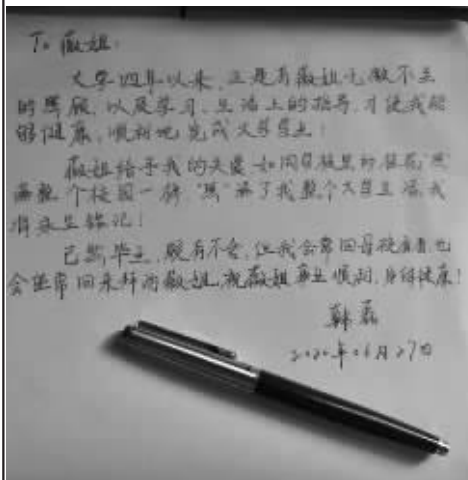 To 薇姐:
大学四年以来,正是有薇姐无微不至
的照顾,以及学习、生活上的指导,才使我能
够健康、顺利地完成大学学业!
薇姐给予我的关爱如同母校里的桂花"熏"
满整个校园一样,"熏"满了我整个大学生活,我
将永生铭记!
已然毕业,颇有不舍,但我会常回母校看看,也
会经常回来拜访薇姐,祝薇姐事业顺利,身体健康!
韩磊
2020年06月27日